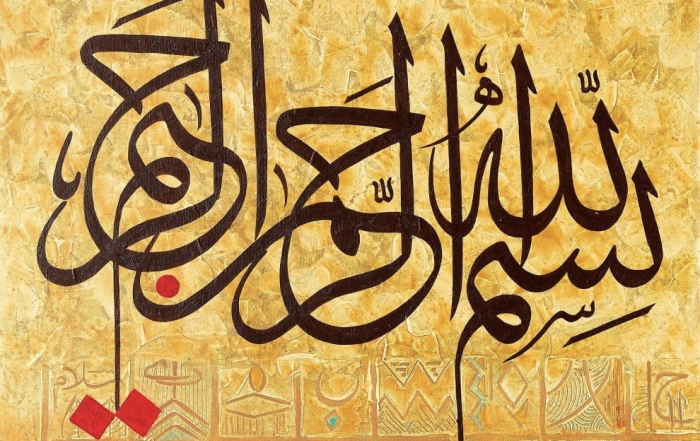 بسم الله الرحمن الرحيم
سلام